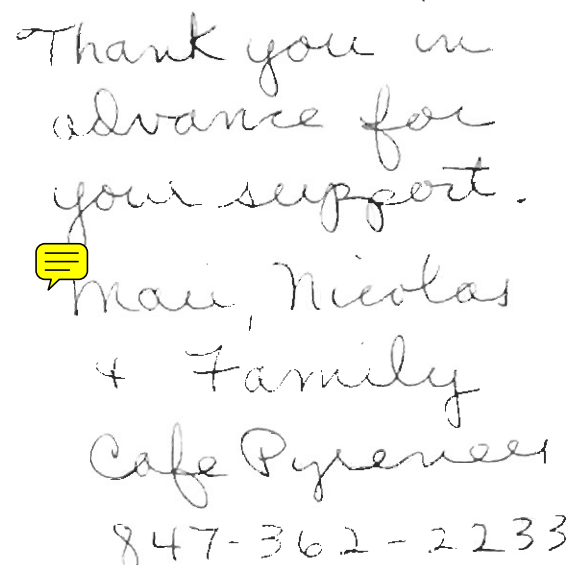 Thank you in
advance for
your support.
Mari, Nicolas
+ Family
Cafe Pyrenees
847-362-2233